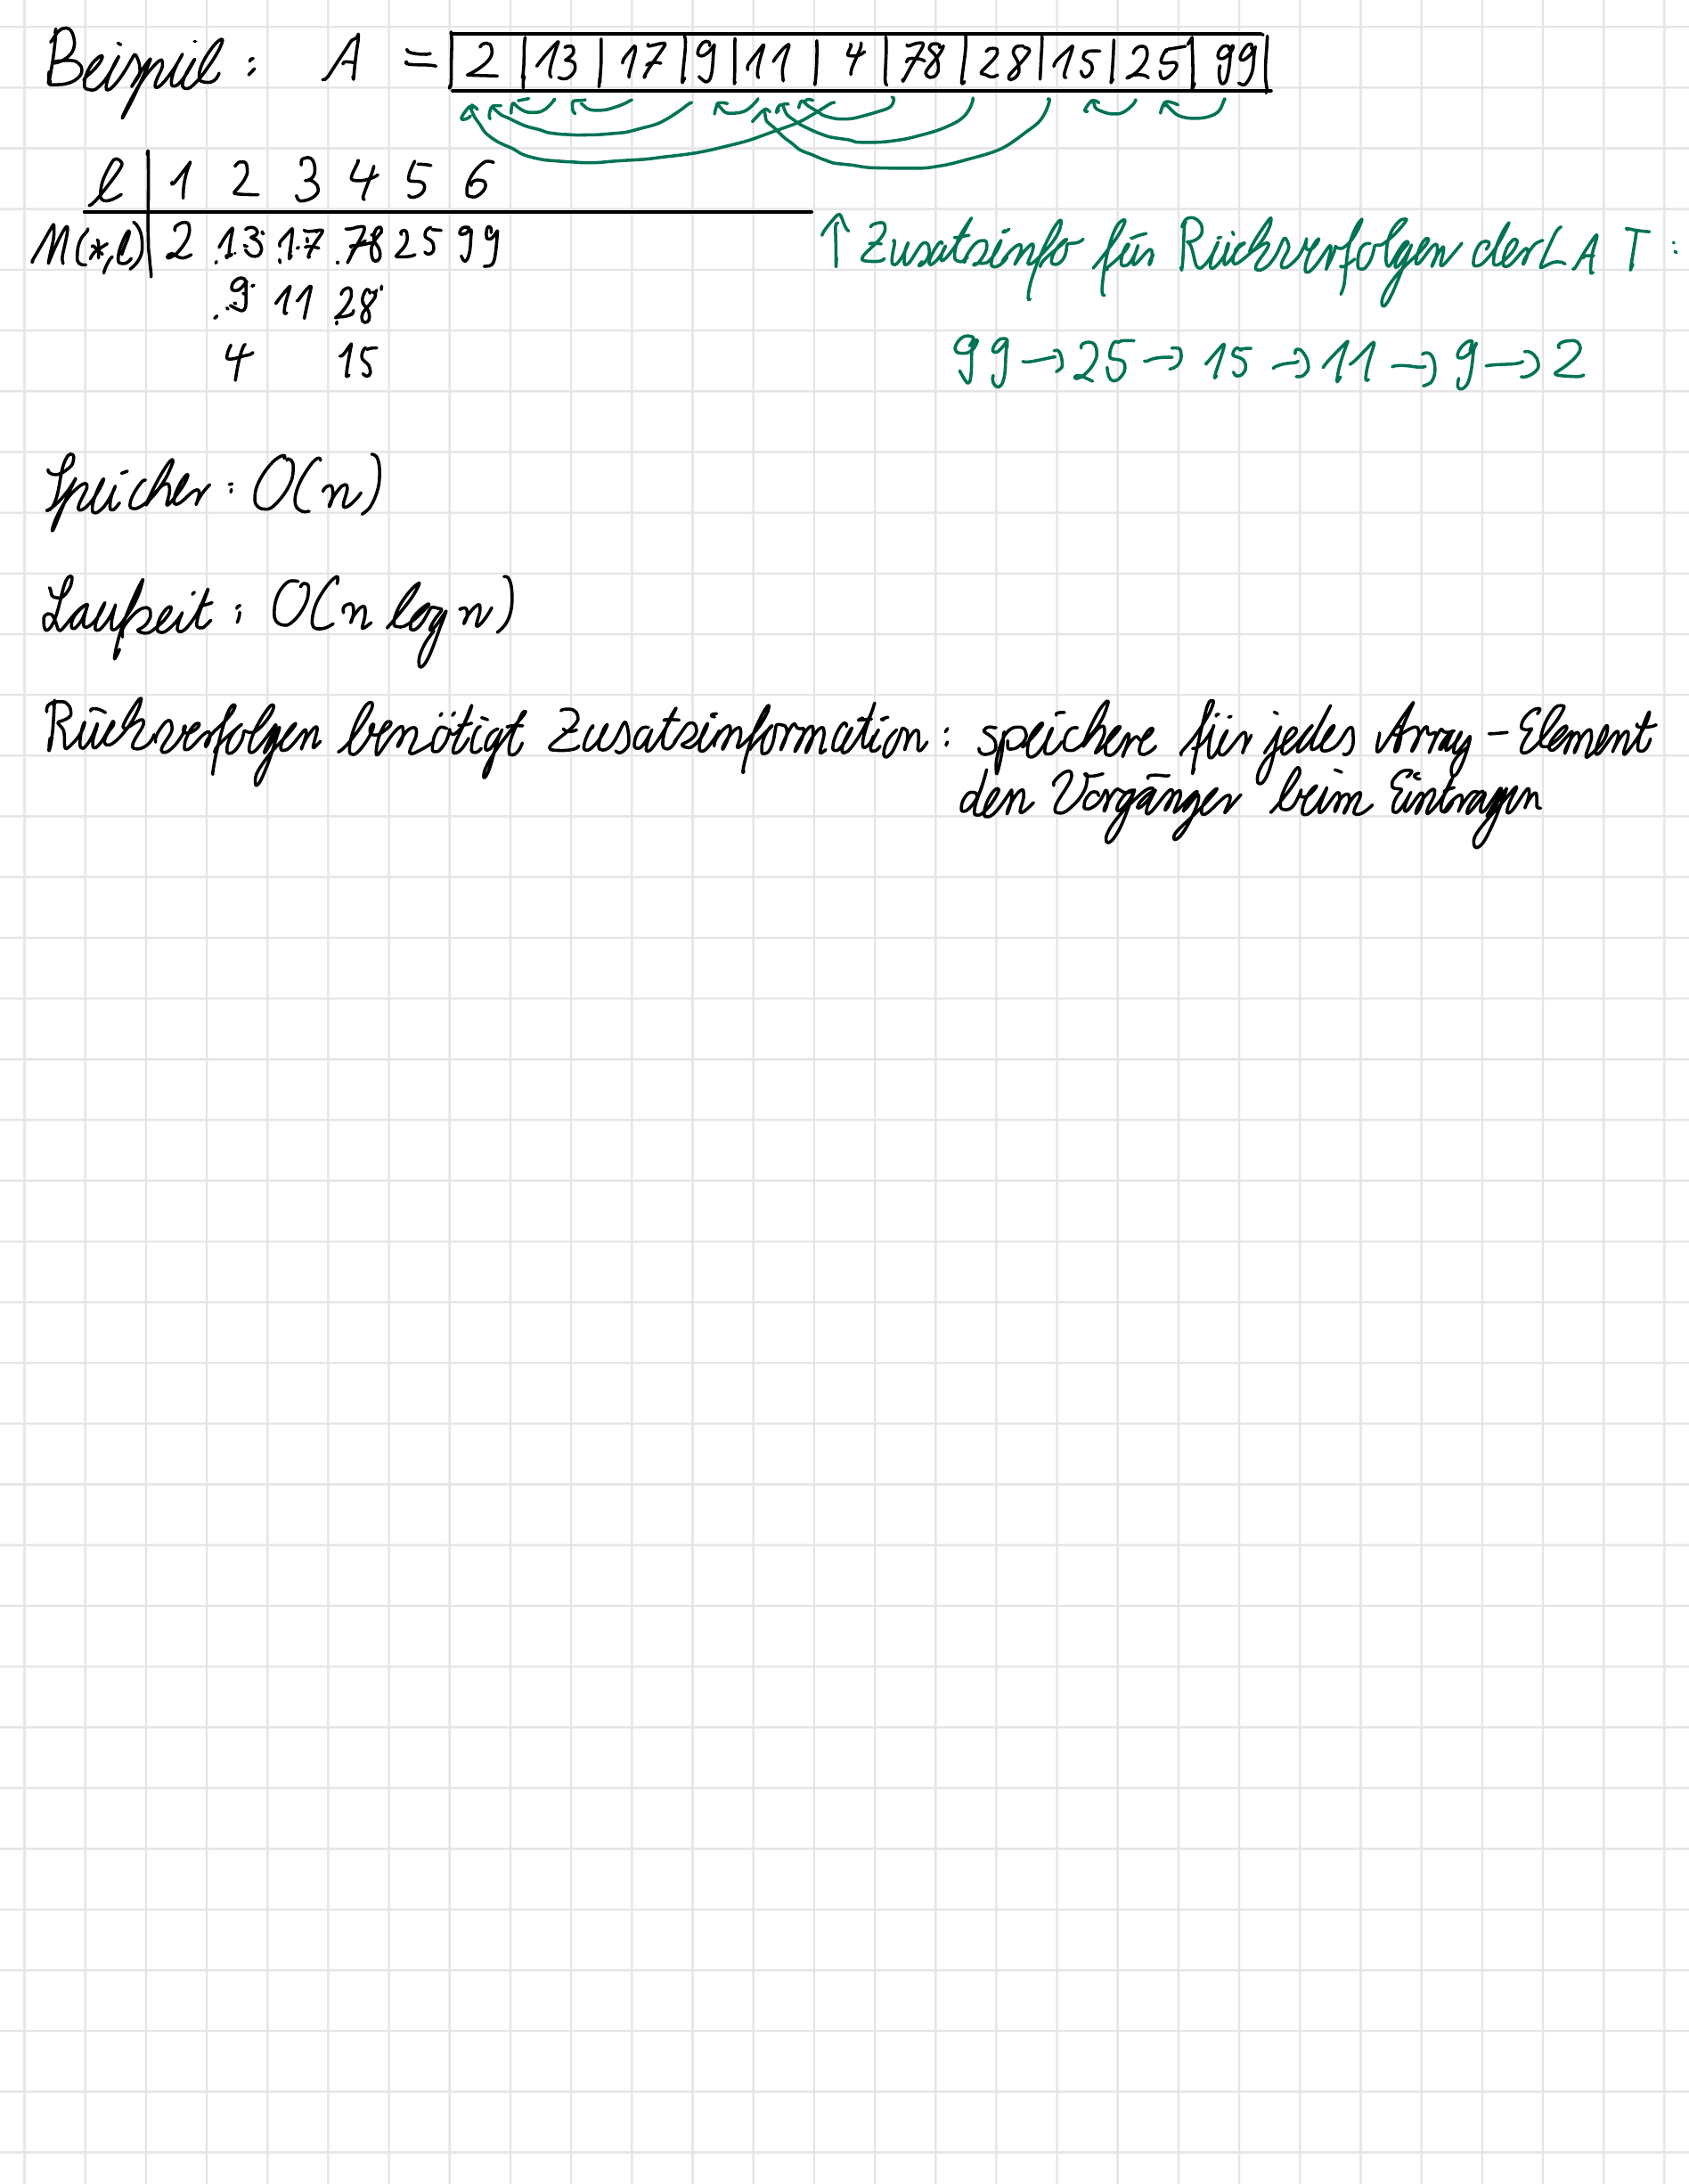 Beispiel: A = | 2 | 13 | 17 | 9 | 11 | 4 | 78 | 28 | 15 | 25 | 99 |
l | 1 2 3 4 5 6
M(*,l) | 2 13 17 78 25 99
9 11 28
4 15
↑ Zusatzinfo für Rückverfolgen der LAT:
99 → 25 → 15 → 11 → 9 → 2
Speicher: O(n)
Laufzeit: O(n log n)
Rückverfolgen benötigt Zusatzinformation: speichere für jedes Array-Element
den Vorgänger beim Eintragen